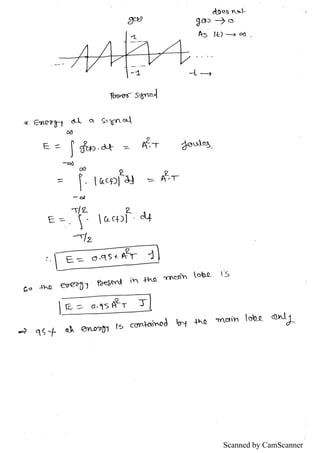 does not
g(t) g(t) → 0
1 As |t| → ∞.
.... ....
-1 -t →
Power Signal
* Energy of a signal
E = ∫_{-∞}^{∞} g²(t).dt = A².T Joules.
= ∫_{-∞}^{∞} |G(f)|² df = A².T
E = ∫_{-T/2}^{T/2} |G(f)|².df
∴ E = 0.95 × A²T J
So the energy Present in the main lobe is
E = 0.95 A²T J
→ 95% of energy is contained by the main lobe only
Scanned by CamScanner